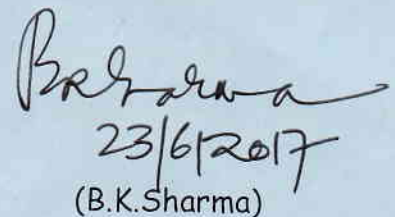 BKSharma
23/6/2017
(B.K.Sharma)